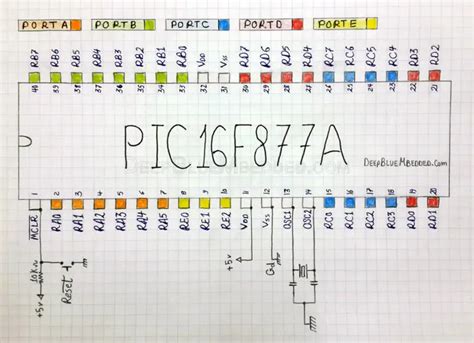 PORTA PORTB PORTC PORTD PORTE
RB7 RB6 RB5 RB4 RB3 RB2 RB1 RB0 VDD VSS RD7 RD6 RD5 RD4 RC7 RC6 RC5 RC4 RD3 RD2
40 39 38 37 36 35 34 33 32 31 30 29 28 27 26 25 24 23 22 21
PIC16F877A
DeepBlueMbedded.com
1 2 3 4 5 6 7 8 9 10 11 12 13 14 15 16 17 18 19 20
MCLR RA0 RA1 RA2 RA3 RA4 RA5 RE0 RE1 RE2 VDD VSS OSC1 OSC2 RC0 RC1 RC2 RC3 RD0 RD1
10K
Reset
+5v
+5v
Gd